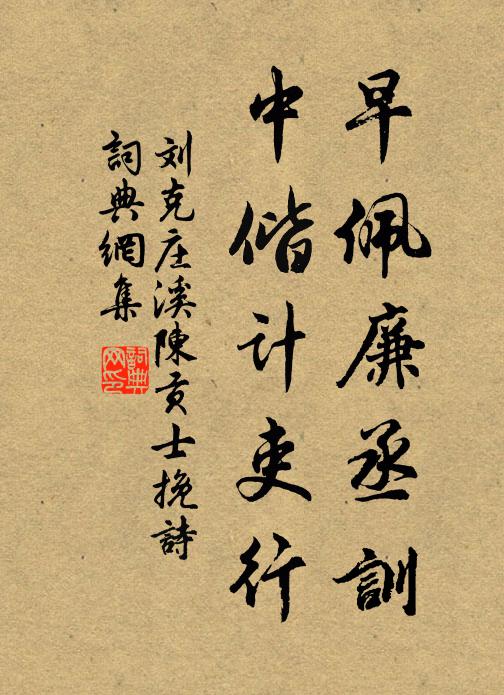 早佩廉丞訓
中偕計吏行
刘克庄溪陳貢士挽詩
詞典網集
詞典
网印